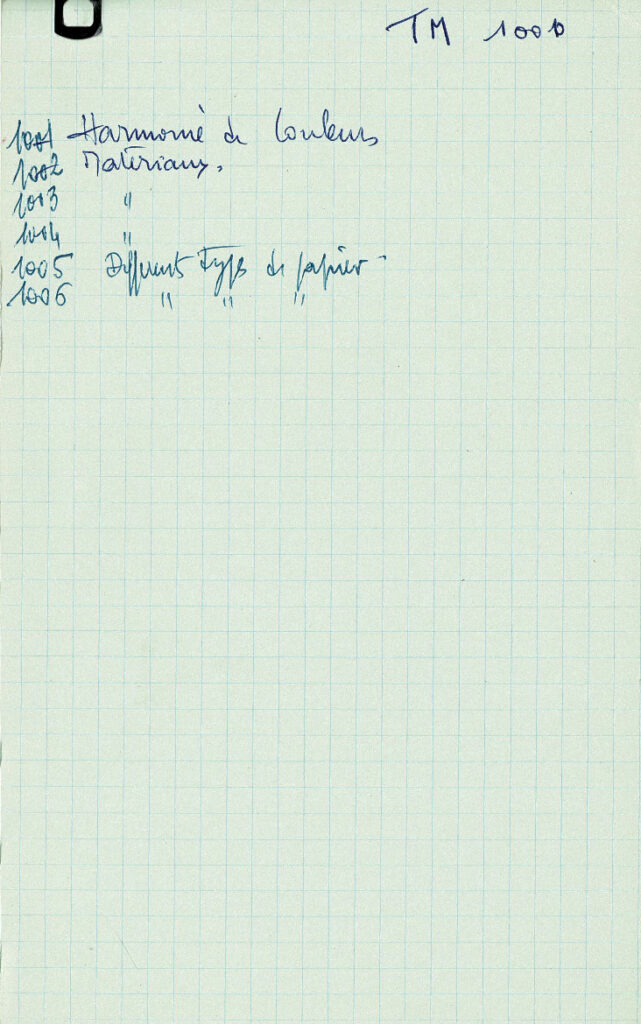 TM 1000
1001 Harmonie de Couleurs
1002 Matériaux.
1003 "
1004 "
1005 Différents Types de papier
1006 " " "